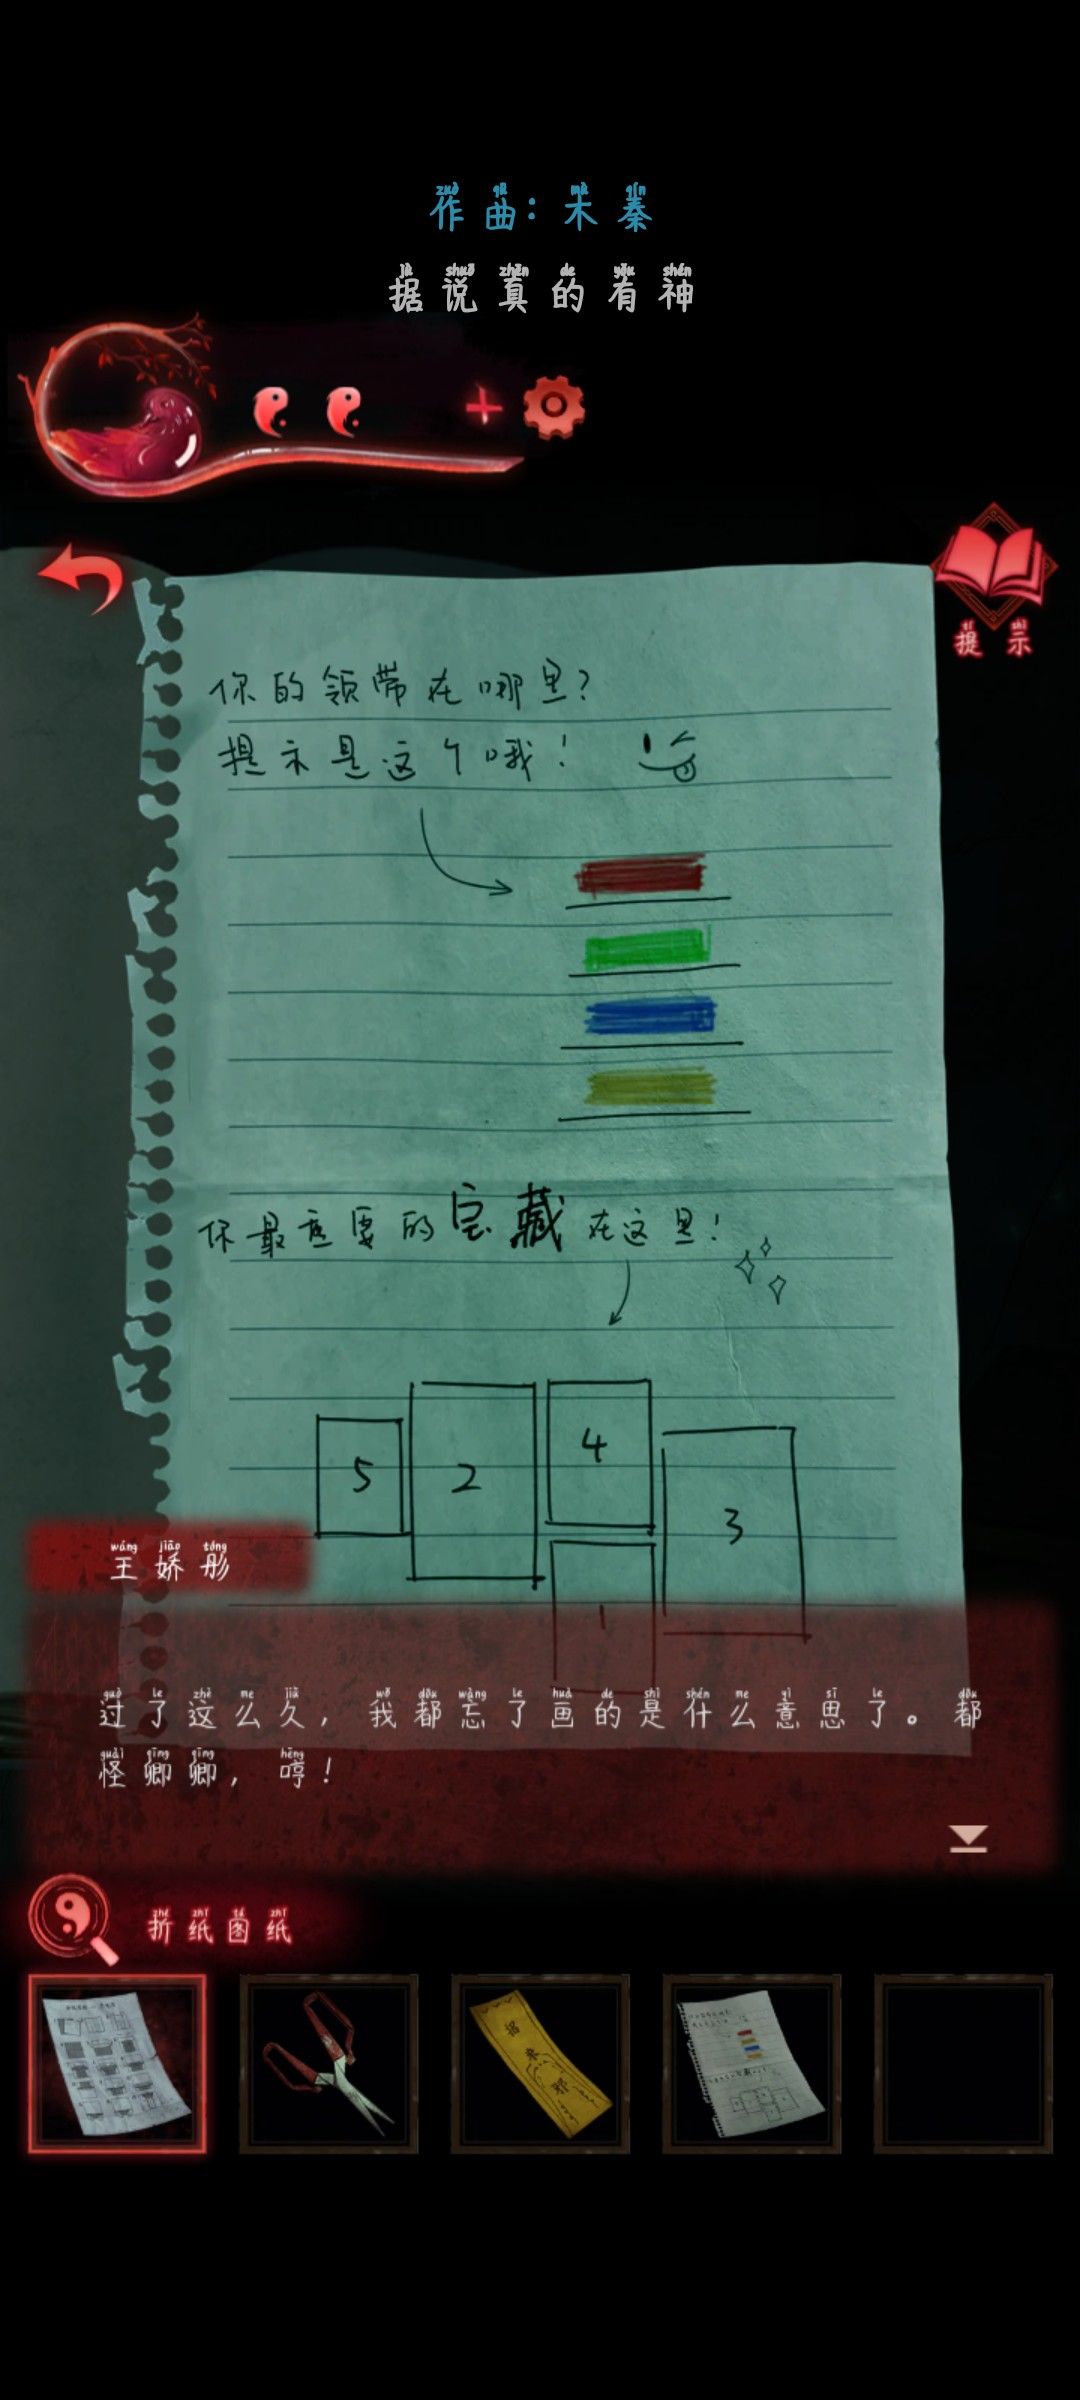 zuò qǔ mù qín
作曲：木秦
jù shuō zhēn de yǒu shén
据说真的有神
tí shì
提示
你的领带在哪里?
提示是这个哦!
你最重要的宝藏在这里!
5
2
4
3
1
wáng jiāo tóng
王娇彤
guò le zhè me jiǔ wǒ dōu wàng le huà de shì shén me yì sī le dōu
过了这么久，我都忘了画的是什么意思了。都
guài qīng qīng hēng
怪卿卿，哼！
zhé zhǐ tú zhǐ
折纸图纸
招来邪